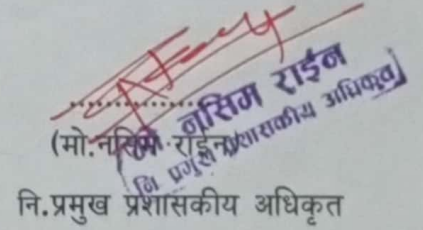 मो. नसिम राईन
नि प्रमुख प्रशासकीय अधिकृत
(मो.नसिम राईन)
नि.प्रमुख प्रशासकीय अधिकृत